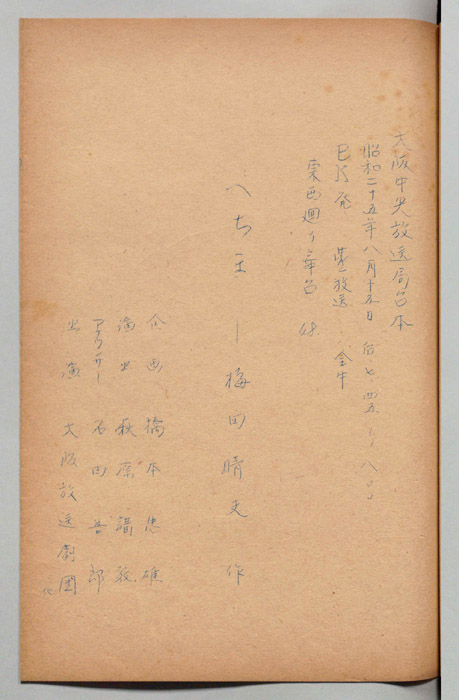 大阪中央放送局台本
昭和二十五年八月十五日 后.七.四五―八.〇〇
BK発 第一放送 全中
東西廻り舞台
へちま ― 梅田晴夫 作
企画 橋本忠雄
演出 萩原
アナウンサー 石田 郎
出演 大阪放送劇団